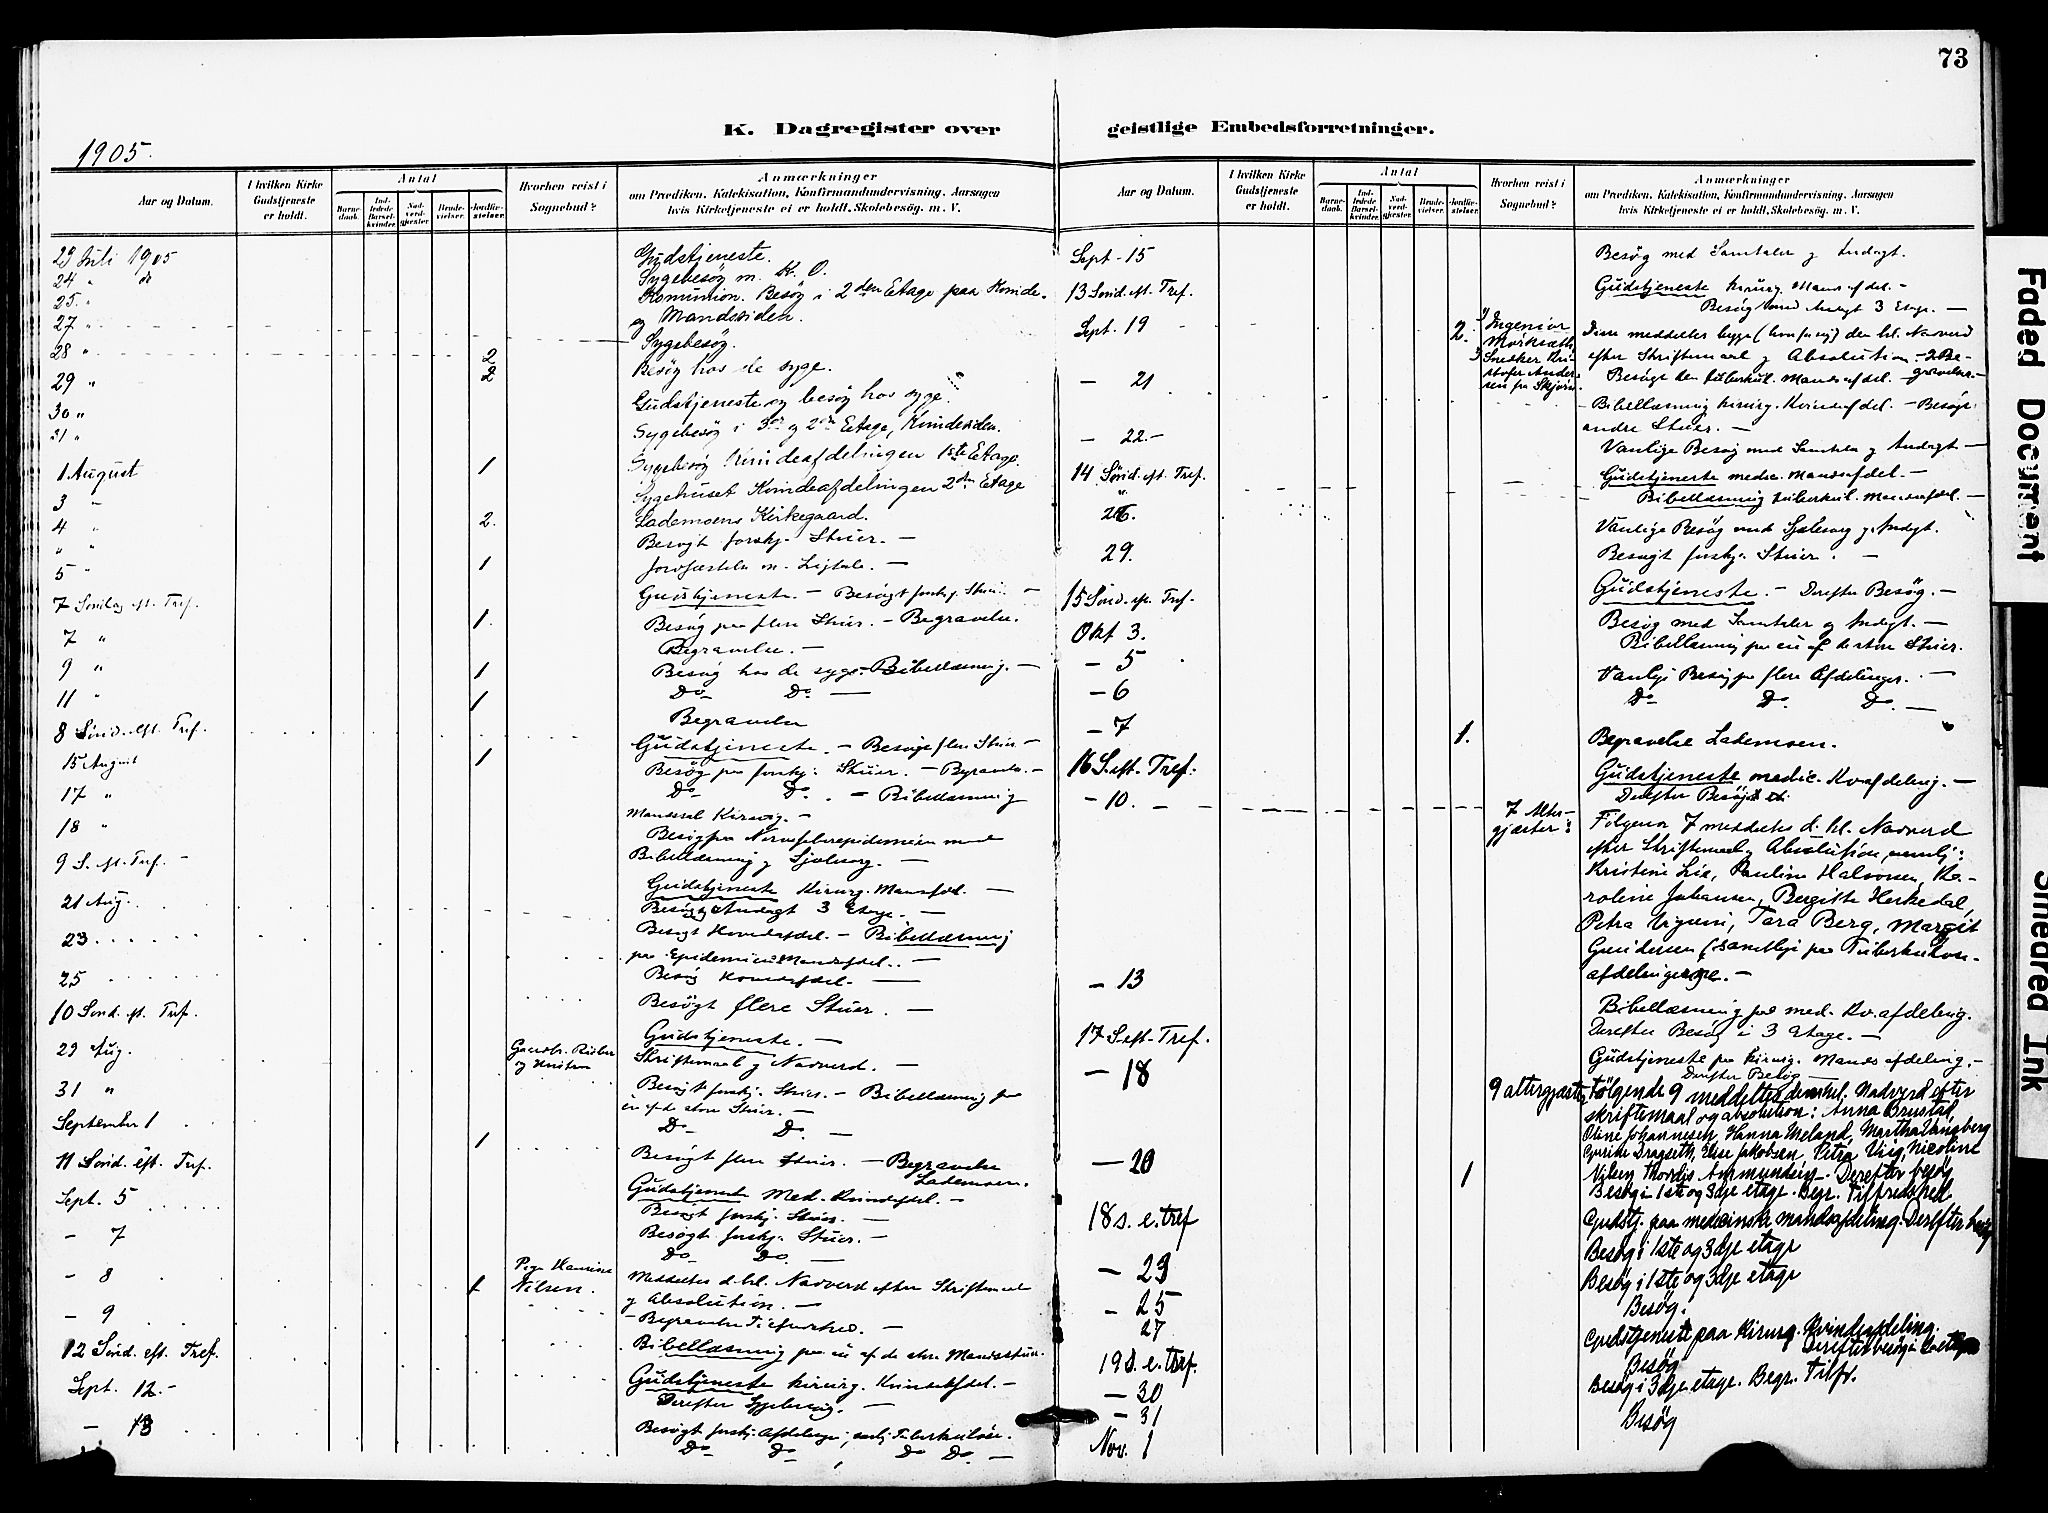 73
K. Dagregister over geistlige Embedsforretninger.
1905.
Aar og Datum.
I hvilken Kirke Gudstjeneste er holdt.
Antal
Barne-daab.
Ind-ledede Barsel-kvinder.
Nad-verd-gjester.
Brude-vielser.
Jordfæ-stelser.
Hvorhen reist i Sognebud?
Anmærkninger
om Prædiken, Katekisation, Konfirmandundervisning, Aarsagen
hvis Kirketjeneste ei er holdt, Skolebesög, m. V.
23 Juli 1905
24 "
25 "
27 "
28 "
2
29 "
2
30 "
31 "
1 August
1
3 "
4 "
2.
" "
5 "
1
7 Søndag eft. Tref.
7 "
1.
9 "
1
11 "
1
8 Sönd. eft. Tref.
15 August
1
17 "
18 "
9 S. eft. Tref.
21 Aug.
23
25
10 Sönd. eft. Tref.
29 Aug.
31 "
September 1
1
11 Sönd. eft. Tref.
Sept. 5
- 7
- 8
Nilsen.
1
- 9
12 Sönd. eft. Tref.
Sept. 12.-
- 13
Gudstjeneste.
Sygebesög m. K. O.
Komunion. Besög i 2den Etage paa Kvinde-
og Mandssiden.
Sygebesög.
Besög hos de syge.
Gudstjeneste og besög hos syge.
Sygebesög i 3die og 2den Etage, Kvindesiden.
Sygebesög Kvindeafdelingen 1ste Etage.
Sygehuset Kvindeafdelingen 2den Etage
Lademoens Kirkegaard.
Besögt forskj. Stuer. -
Jordfæstelse m. Ligtale. -
Gudstjeneste. - Besögt forskj. Stuer. -
Besög paa flere Stuer. - Begravelse.
Begravelse. -
Besög hos de syge. - Bibellæsning. -
Do Do -
Begravelse
Gudstjeneste. - Besögt flere Stuer -
Besög paa forskj. Stuer. - Begravelse. -
Do Do. - Bibellæsning
Mandssal Kirurg. -
Bibellæsning og Sjælesorg. -
Gudstjeneste Kirurg. Mansafdel. -
Besög og Andagt 3 Etage. -
Besögt Kvindeafdel. - Bibellæsning
paa Epidemiens Mandsafdel. -
Besög Kvindeafdel. -
Besögt flere Stuer. -
Gudstjeneste. -
Skriftemaal og Nadverd. -
Besögt forskj. Stuer. - Bibellæsning paa
en af de store Stuer. -
Do Do. -
Besögt flere Stuer. - Begravelse
Lademoen.
Gudstjeneste Med. Kvindeafdel. -
Besögt forskj. Stuer. -
Besögt forskj. Stuer. -
Do Do. -
Meddeltes d. hl. Nadverd efter Skriftemaal
og Absolution. -
- Begravelse Tilfredshed. -
Bibellæsning paa en af de store Mandsstuer.
Gudstjeneste kirurg. Kvindeafdel. -
Derefter
Besögt forskj. Afdelinger, Tuberkulöse.
Do Do Do Do. -
Aar og Datum.
I hvilken Kirke Gudstjeneste er holdt.
Antal
Barne-daab.
Ind-ledede Barsel-kvinder.
Nad-verd-gjester.
Brude-vielser.
Jordfæ-stelser.
Hvorhen reist i Sognebud?
Anmærkninger
om Prædiken, Katekisation, Konfirmandundervisning, Aarsagen
hvis Kirketjeneste ei er holdt, Skolebesög, m. V.
Sept - 15
Besög med Samtaler og Andagt.
13 Sönd. eft. Tref.
Gudstjeneste kirurg. Mansafdel. -
Besög med Andagt 3 Etage. -
Sept. 19
2.
Ingeniør
Snekker Kri-
stofer Ander-
sen
Disse meddeltes begge den hl. Nadverd
efter Skriftemaal og Absolution. - 2 Be-
gravelser -
- 21
Besögt den tuberkul. Mandsafdel. -
Bibellæsning kirurg. Kvindeafdel. - Besögt
andre Stuer. -
- 22.-
Vanlige Besög med Samtale og Andagt -
14 Sönd. eft. Tref.
Gudstjeneste medic. Mansafdel. -
Bibellæsning tuberkul. Mansafdel. -
26.
Vanlige Besög med Sjælesorg og Andagt.
29.
Besögt forskj. Stuer. -
15 Sönd. eft. Tref.
Gudstjeneste. - Derefter Besög. -
Okt 3.
Besög med Samtaler og Andagt. -
- 5
Bibellæsning paa en af de store Stuer.
- 6
Vanlige Besög paa flere Afdelinger. -
Do Do. Do. -
- 7
1.
Begravelse Lademoen.
16 S. eft. Tref.
Gudstjeneste medic. Kv.afdeling. -
- 10.
7 Alter-
gjæster:
Fölgende 7 meddeltes d. hl. Nadverd
efter Skriftemaal og Absolution, nemlig:
Kristine Lie, Pauline Halvorsen, Ka-
roline Johansen, Bergitte Herkedal,
Petra Vigum, Tara Berg, Margit
Gundersen (samtlige paa Tuberkulose-
afdelingerne. -
- 13
Bibellæsning paa med. Kv.afdeling.
Derefter Besög i 3 Etage. -
17 S. eft. Tref.
Gudstjeneste paa kirurg. Mandsafdeling. -
Derefter Besög -
- 18
9 altergjæster
Følgende 9 meddeltes den hel. Nadverd efter
skriftemaal og absolution: Anna Brustad,
Oline Johannesen, Hanna Meland, Martha Vangberg
Gurike Dragseth, Elise Jakobsen, Petra Vig, Nicoline
Nilsen, Thordis Aurmundsen. - Derefter besøg
- 20
1
Besøg i 1ste og 3dje etage. Begr. Tilfredshed
18 s. e. tref
Gudstj. paa medicinsk mandsafdeling. Derefter besøg
- 23
Besøg i 1ste og 3dje etage
- 25
Besøg i 1ste og 3dje etage
27
Besøg.
19 s. e. tref.
Gudstjeneste paa kirurg. kvindeafdeling.
Derefter besøg i
- 30
Besøg
- 31
Besøg i 3dje etage. Begr. Tilfr.
Nov. 1
Besøg
Faded Document
Smeared Ink